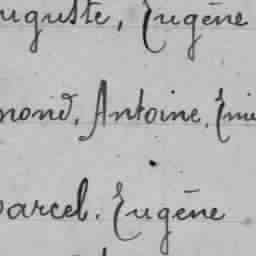 uguste, Eugène
mond, Antoine, Emi
arcel. Eugène